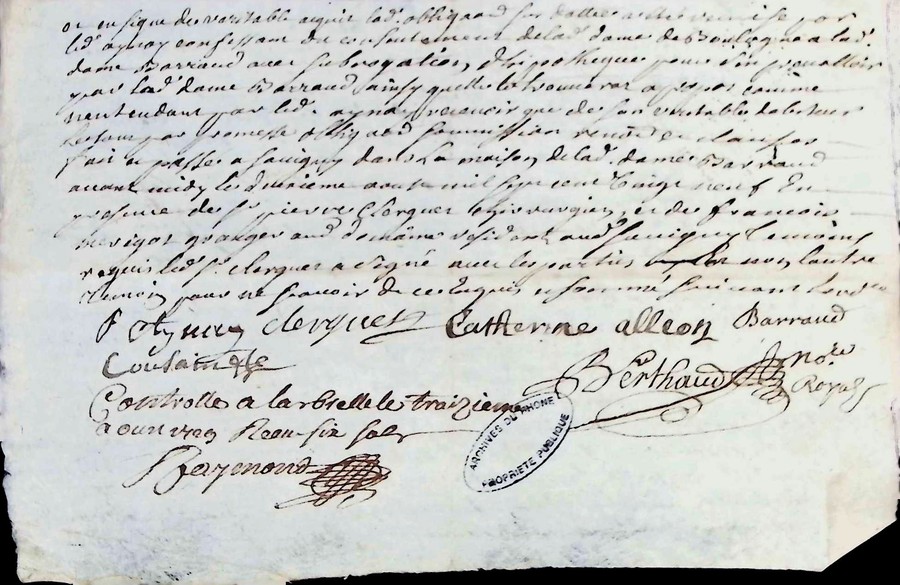 et en signe de veritable acquit lad. obligaon sur
led. aynay confessant du consentement de lad. dame de Boulogne a lad.
dame Barraud avec subrogation d'hipotheque pour s'en prevalloir
par lad. dame Barraud ainsy quelle le trouverat a propos comme
nentendant par led. aynay recevoir que de son veritable debiteur
promesse obligaon soumission renon clauses
fait et passé a Savigny dans la maison de lad. dame Barraud
avant midy le deuxieme aoust mil sept cent vingt neuf En
presence de sr pierre Clerguet chirurgien et de francois
granger aud domaine residants aud Savigny temoins
requis led. sr. clerguet a signé avec les parties et non lautre
temoin pour ne scavoir de ce enquis et sommé suivant lord.ce
Clerguet Catherine alleon Barraud
Berthaud no.re Royal
Controllé a larbrelle le treizieme
aoust 1729 Receu six sols
Raymond
ARCHIVES DU RHONE
PROPRIETE PUBLIQUE